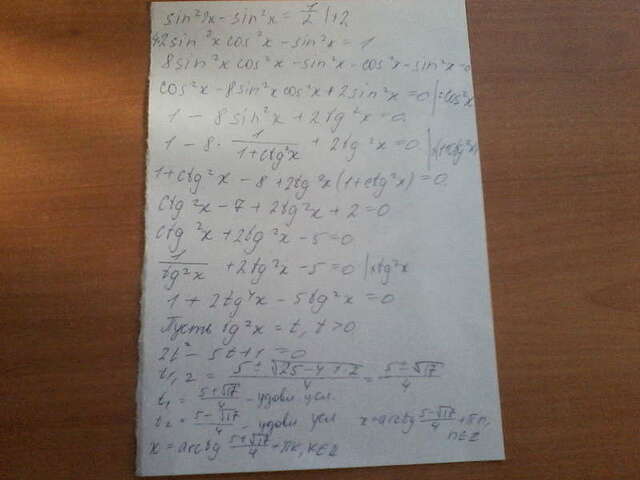 sin²2x - sin²x = 1/2 |·2
4·2sin²x cos²x - sin²x = 1
8sin²x cos²x - sin²x - cos²x - sin²x = 0
cos²x - 8sin²x cos²x + 2sin²x = 0 | ÷cos²x
1 - 8sin²x + 2tg²x = 0
1 - 8 · 1/(1+ctg²x) + 2tg²x = 0 |x(1+ctg²x)
1+ctg²x - 8 + 2tg²x(1+ctg²x) = 0
ctg²x - 7 + 2tg²x + 2 = 0
ctg²x + 2tg²x - 5 = 0
1/tg²x + 2tg²x - 5 = 0 |xtg²x
1 + 2tg⁴x - 5tg²x = 0
Пусть tg²x = t, t > 0
2t² - 5t + 1 = 0
t1,2 = (5 ± √(25-4·1·2))/4 = (5 ± √17)/4
t1 = (5+√17)/4 - удовл усл.
t2 = (5-√17)/4 - удовл усл x = arctg (5-√17)/4 + πn, n∈Z
x = arctg (5+√17)/4 + πk, k∈Z